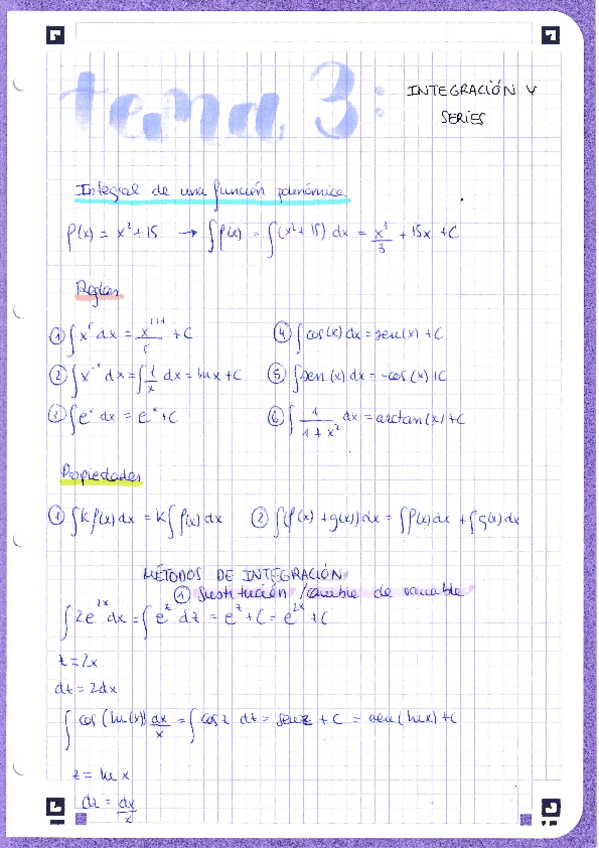 tema 3: INTEGRACIÓN Y
SERIES
Integral de una función polinómica
f(x) = x² + 15 → ∫f(x) = ∫(x² + 15) dx = x³/3 + 15x + C
Reglas
① ∫x^r dx = x^(r+1)/r + C
④ ∫cos(x) dx = sen(x) + C
② ∫x^-1 dx = ∫1/x dx = ln x + C
⑤ ∫sen(x) dx = -cos(x) + C
③ ∫e^x dx = e^x + C
⑥ ∫1/(1+x²) dx = arctan(x) + C
Propiedades
① ∫K f(x) dx = K∫f(x) dx ② ∫(f(x) + g(x)) dx = ∫f(x) dx + ∫g(x) dx
MÉTODOS DE INTEGRACIÓN
① Sustitución / cambio de variable
∫2e^2x dx = ∫e^z dz = e^z + C = e^2x + C
z = 2x
dz = 2dx
∫cos(ln(x)) dx/x = ∫cos z dz = sen z + C = sen(ln x) + C
z = ln x
dz = dx/x